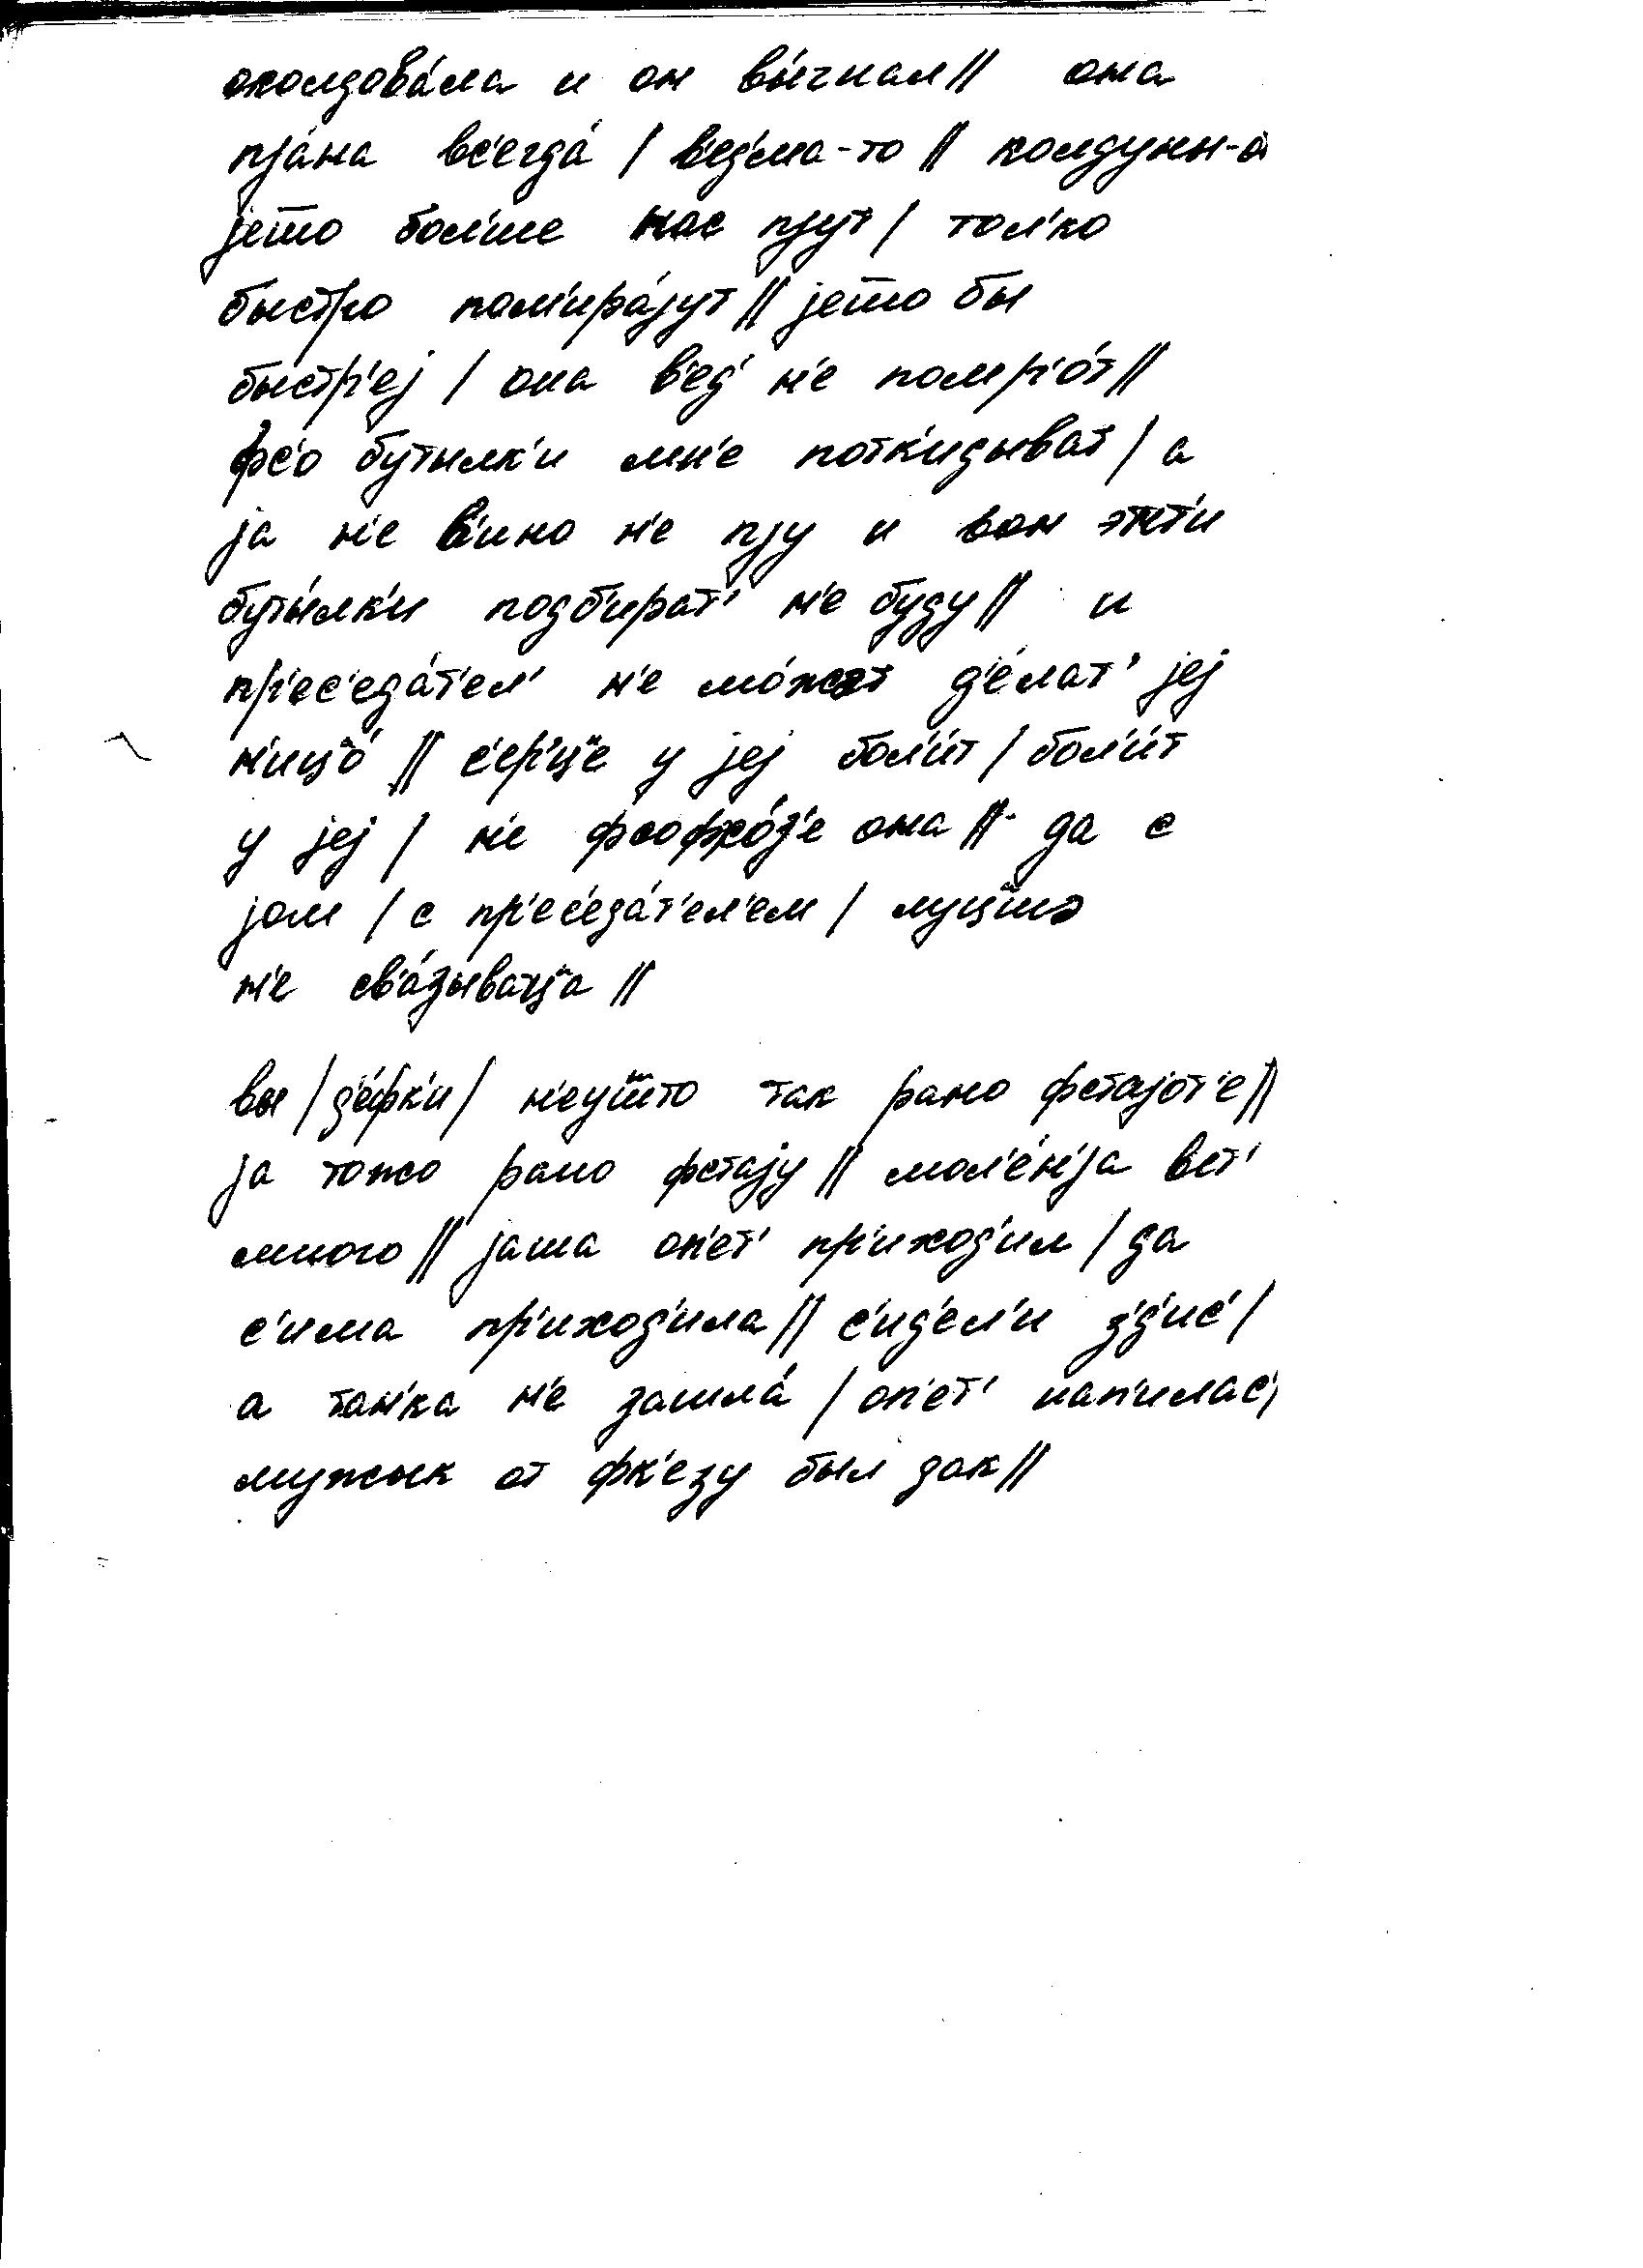 околдова́ла и он вы́гнал // она
пја́на вс'егда́ / в'ед'ма-то // колдуны-а
јешо бол'ше нас пјут / тол'ко
быстро пом'ира́јут // јешо бы
быстр'еј / она в'ед' н'е помр'о́т //
фс'о бутылк'и мн'е потк'идыват / а
ја н'е в'ино н'е пју и вон эт'и
буты́лк'и подб'ират' н'е буду //  и
пр'ес'еда́т'ел' н'е мо́жэт д'е́лат' јеј
н'ицо́ // с'ерце у јеј бол'и́т / бол'и́т
у јеј / н'е фсофхо́з'е она // да с
јом / с пр'ес'еда́т'ел'ем / луцшэ
н'е св'а́зыватца //
вы / д'е́фк'и / н'еушто так рано фстајот'е //
ја тожо рано фстају // мол'е́н'ја вет'
много // јаша оп'ет' пр'иход'ил / да
с'има пр'иход'ила // с'ид'ел'и з'д'ис' /
а тан'ка н'е зашла́ / оп'ет' нап'илас' /
мужык от фк'езу был зак //